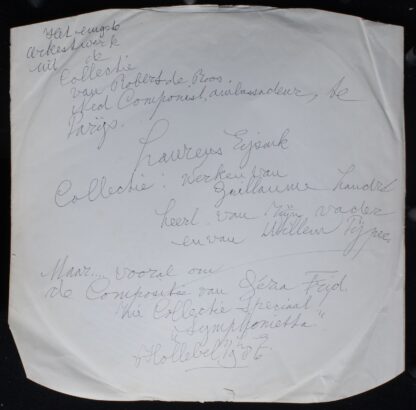 Het enigste
orkestwerk
uit de
Collectie
van Robert de Roos.
Ned Componist, ambassadeur, te
Parijs.
Laurens
Collectie: Werken van
Guillaume Landré
heer van Mijn vader
en van Willem Pijper
Maar.... vooral om
de Compositie van Géza Frid.
Collectie Speciaal
"Symphonietta"